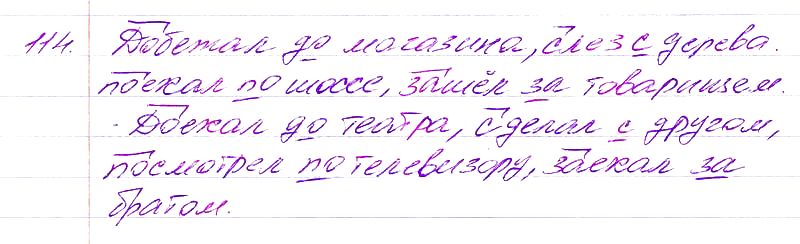 114. Добежал до магазина, слез с дерева.
поехал по шоссе, зашёл за товарищем.
Доехал до театра, сделал с другом,
посмотрел по телевизору, заехал за
братом.